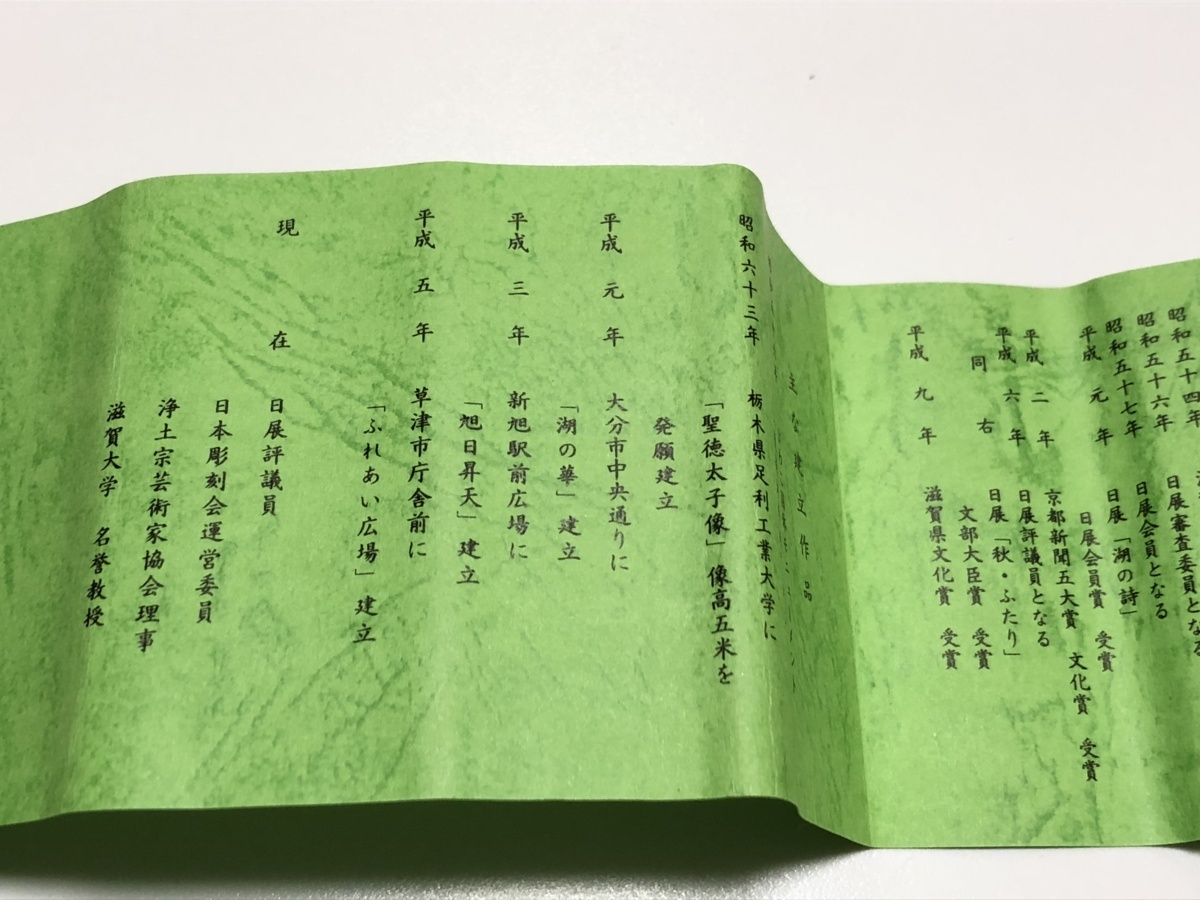 昭和五十四年
日展審査委員となる
昭和五十六年 日展会員となる
昭和五十七年 日展「湖の詩」
平成 元 年 日展会員賞 受賞
京都新聞五大賞 文化賞 受賞
平成 二 年 日展評議員となる
平成 六 年 日展「秋・ふたり」
同 右 文部大臣賞 受賞
平成 九 年 滋賀県文化賞 受賞
主な建立作品
昭和六十三年 栃木県足利工業大学に
「聖徳太子像」像高五米を
発願建立
平成 元 年 大分市中央通りに
「湖の華」建立
平成 三 年 新旭駅前広場に
「旭日昇天」建立
平成 五 年 草津市庁舎前に
「ふれあい広場」建立
現 在 日展評議員
日本彫刻会運営委員
浄土宗芸術家協会理事
滋賀大学 名誉教授